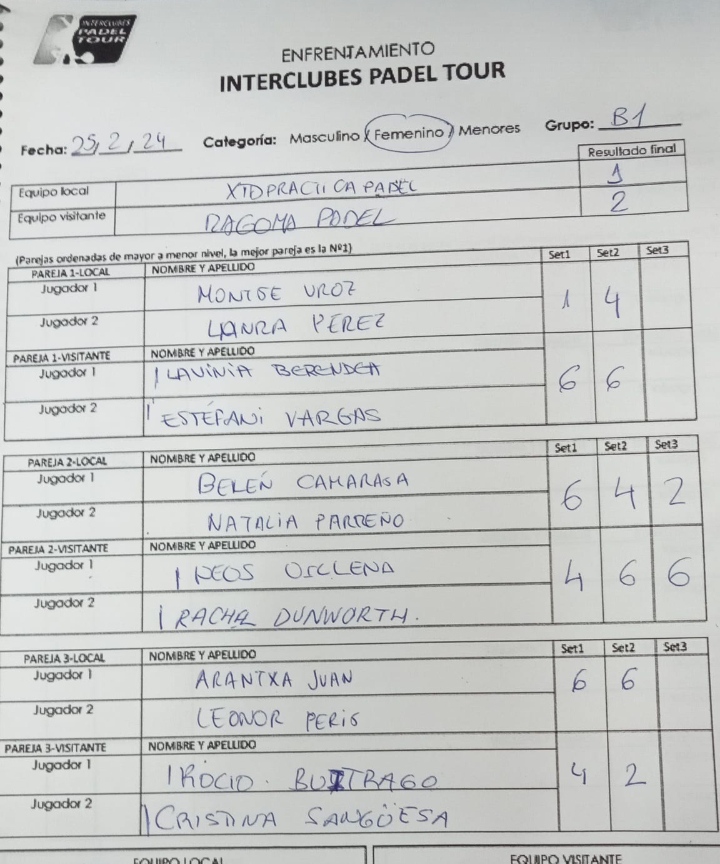 INTERCLUBES
PADEL
TOUR
ENFRENTAMIENTO
INTERCLUBES PADEL TOUR
Fecha: 25/2/24 Categoría: Masculino / Femenino / Menores Grupo: B1
Resultado final
Equipo local XTDPRACTICA PADEL 1
Equipo visitante RAGOMA PADEL 2
(Parejas ordenadas de mayor a menor nivel, la mejor pareja es la Nº1)
PAREJA 1-LOCAL NOMBRE Y APELLIDO Set1 Set2 Set3
Jugador 1 MONTSE UROZ 1 4
Jugador 2 LAURA PEREZ
PAREJA 1-VISITANTE NOMBRE Y APELLIDO
Jugador 1 LAVINIA BERENDEA 6 6
Jugador 2 ESTEFANI VARGAS
PAREJA 2-LOCAL NOMBRE Y APELLIDO Set1 Set2 Set3
Jugador 1 BELEN CAMARASA 6 4 2
Jugador 2 NATALIA PARREÑO
PAREJA 2-VISITANTE NOMBRE Y APELLIDO
Jugador 1 4 6 6
Jugador 2 RACHEL DUNWORTH.
PAREJA 3-LOCAL NOMBRE Y APELLIDO Set1 Set2 Set3
Jugador 1 ARANTXA JUAN 6 6
Jugador 2 LEONOR PERIS
PAREJA 3-VISITANTE NOMBRE Y APELLIDO
Jugador 1 ROCIO. BUITRAGO 4 2
Jugador 2 CRISTINA SANGÜESA
EQUIPO LOCAL EQUIPO VISITANTE